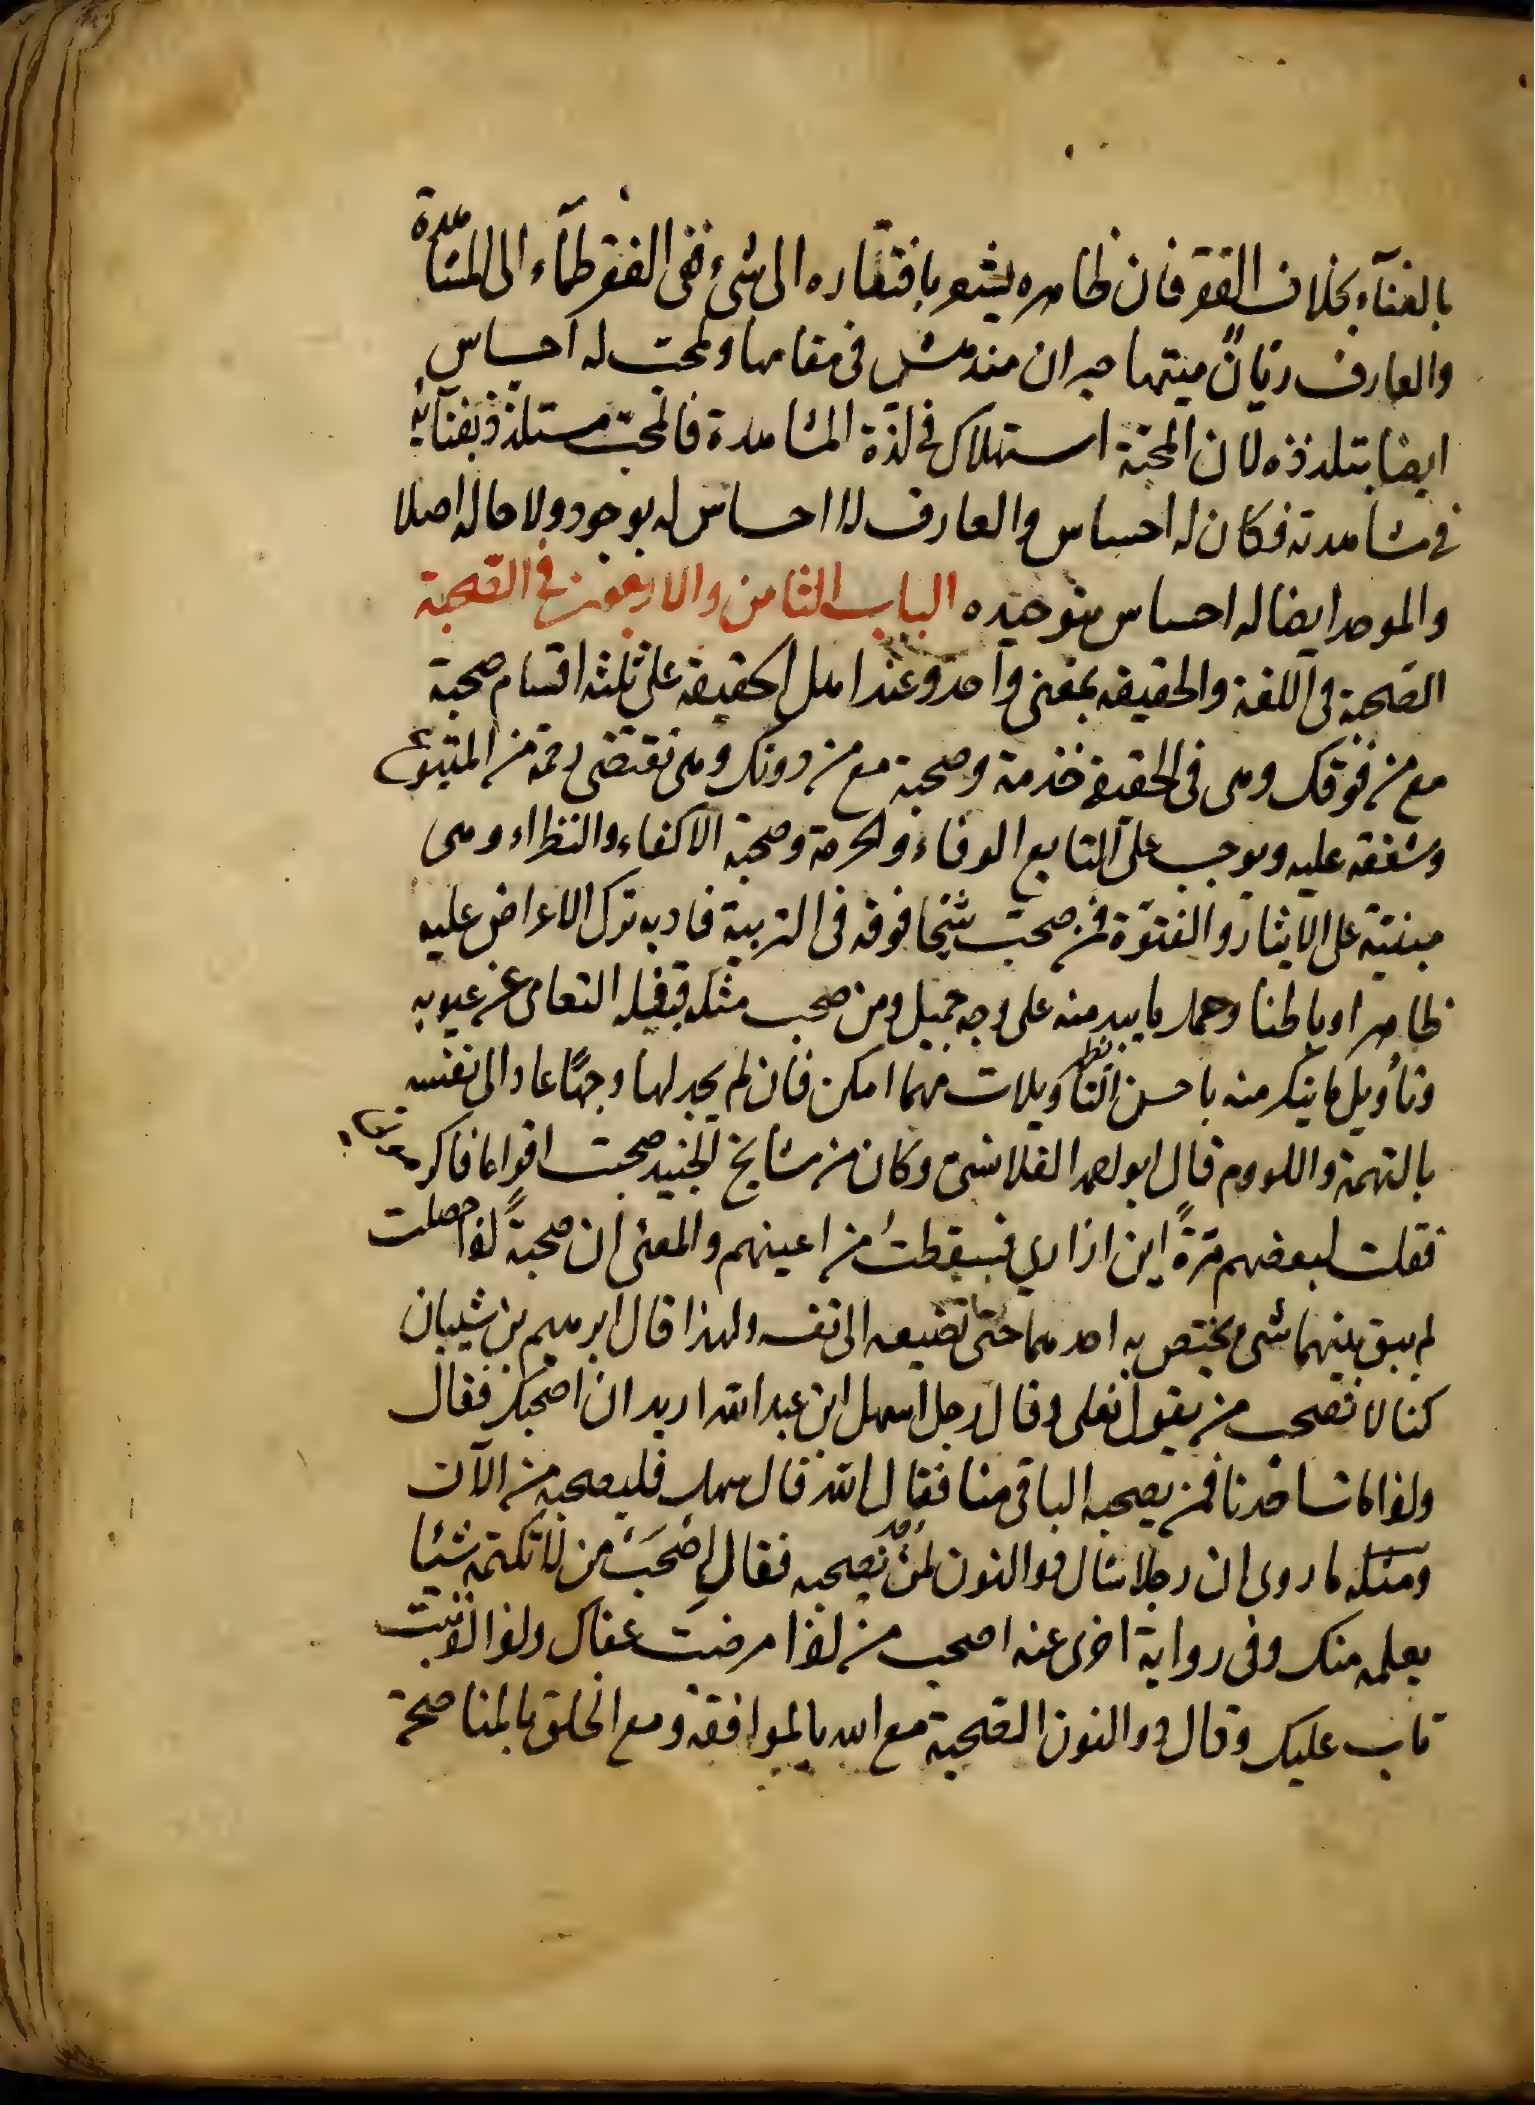 بالغنآء بخلاف الفقر فان ظاهره يشعر بافتقاره الى شىء ففى الفقر ظمآء الى المشاهدة
والعارف ريّانٌ منتهاه حيران مندهش فى مقامها والمحب له احساس
ايضا بتلذذه لان المحبّة استهلاك فى لذّة المشاهدة فالمحب مستلذّذ بفنآئه
فى مشاهدته فكان له احساس والعارف لا احساس له بوجود ولا حاله اصلا
والموحد ايضا له احساس بتوحيده الباب الثامن والاربعون فى الصّحبة
الصّحبة فى اللغة والحقيقه بمعنى واحد وعند اهل الحقيقه على ثلثه اقسام صحبة
مع من فوقك وهى فى الحقيقة خدمة وصحبة مع من دونك وهى تقتضى رحمة من المتبوع
وشفقه عليه ويوجب على التابع الوفاء والحرمة وصحبة الاكفاء والنظراء وهى
مبنيّة على الايثار والفتوّة فمن صحب شيخا فوقه فى التربية فادبه ترك الاعراض عليه
ظاهرا وباطنا وحمل ما يبد منه على وجه جميل ومن صحب مثله فسبيله التعامى عن عيوبه
وتأويل ما ينكر منه باحسن التأويلات مهما امكن فان لم يجد لها وجهًا عاد الى نفسه
بالتهمة واللووم قال ابو احمد القلانسى وكان من مشايخ الجنيد صحبت اقواما فاكرمونى
فقلت لبعضهم مرّةً اين ازارى فسقطتُ من اعينهم والمعنى ان صحبةً اذا حصلت
لم يبق بينهما شىء يختص به احدهما حتى تضيعه الى نفسه ولهذا قال ابرهيم بن شيبان
كنا لا نصحب من يقول نعلى وقال رجل لسهل ابن عبد الله اريد ان اصحبك فقال
واذا مات احدنا فمن يصحبه الباقى منا فقال الله قال سهل فليصحبه من الآن
ومثله ما روى ان رجلا سال ذو النون لمن نصحبه فقال اِصْحَبْ من لا تكتمه شيئا
يعلمه منك وفى رواية اخرى عنه اصحب من اذا مرضت عفاك واذا اذنبت
تاب عليك وقال ذو النون الصّحبة مع الله بالموافقة ومع الخلق بالمناصحة